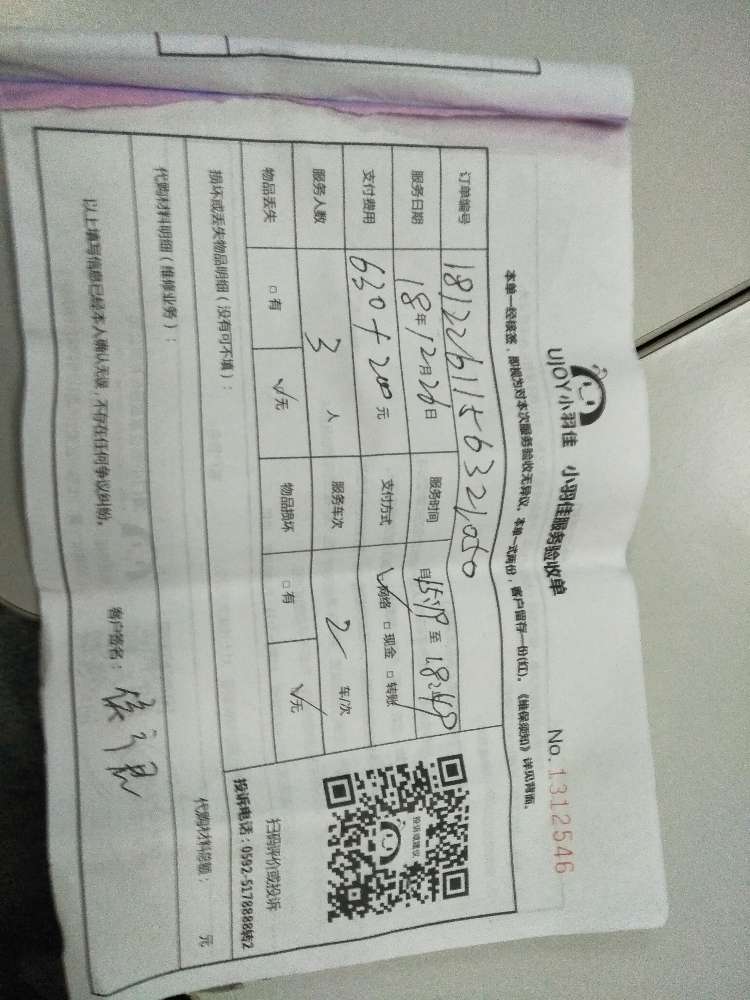 UJOY小羽佳 小羽佳服务验收单 No.1312546
本单一经核签，即视为对本次服务验收无异议。本单一式两份，客户留存一份(红)。《维保须知》详见背面。
订单编号 181226115632050
服务日期 18年12月26日 服务时间 自15:18至18:48
支付费用 630+200元 支付方式 ✓网络 □现金 □转账
服务人数 3人 服务车次 2车/次
物品丢失 □有 ✓无 物品损坏 □有 ✓无
损坏或丢失物品明细（没有可不填）：
代购材料明细（维修业务）： 代购材料总额： 元
以上填写信息已经本人确认无误，不存在任何争议纠纷。
客户签名：
投诉或建议
扫码评价或投诉
投诉电话：0592-5178888转2